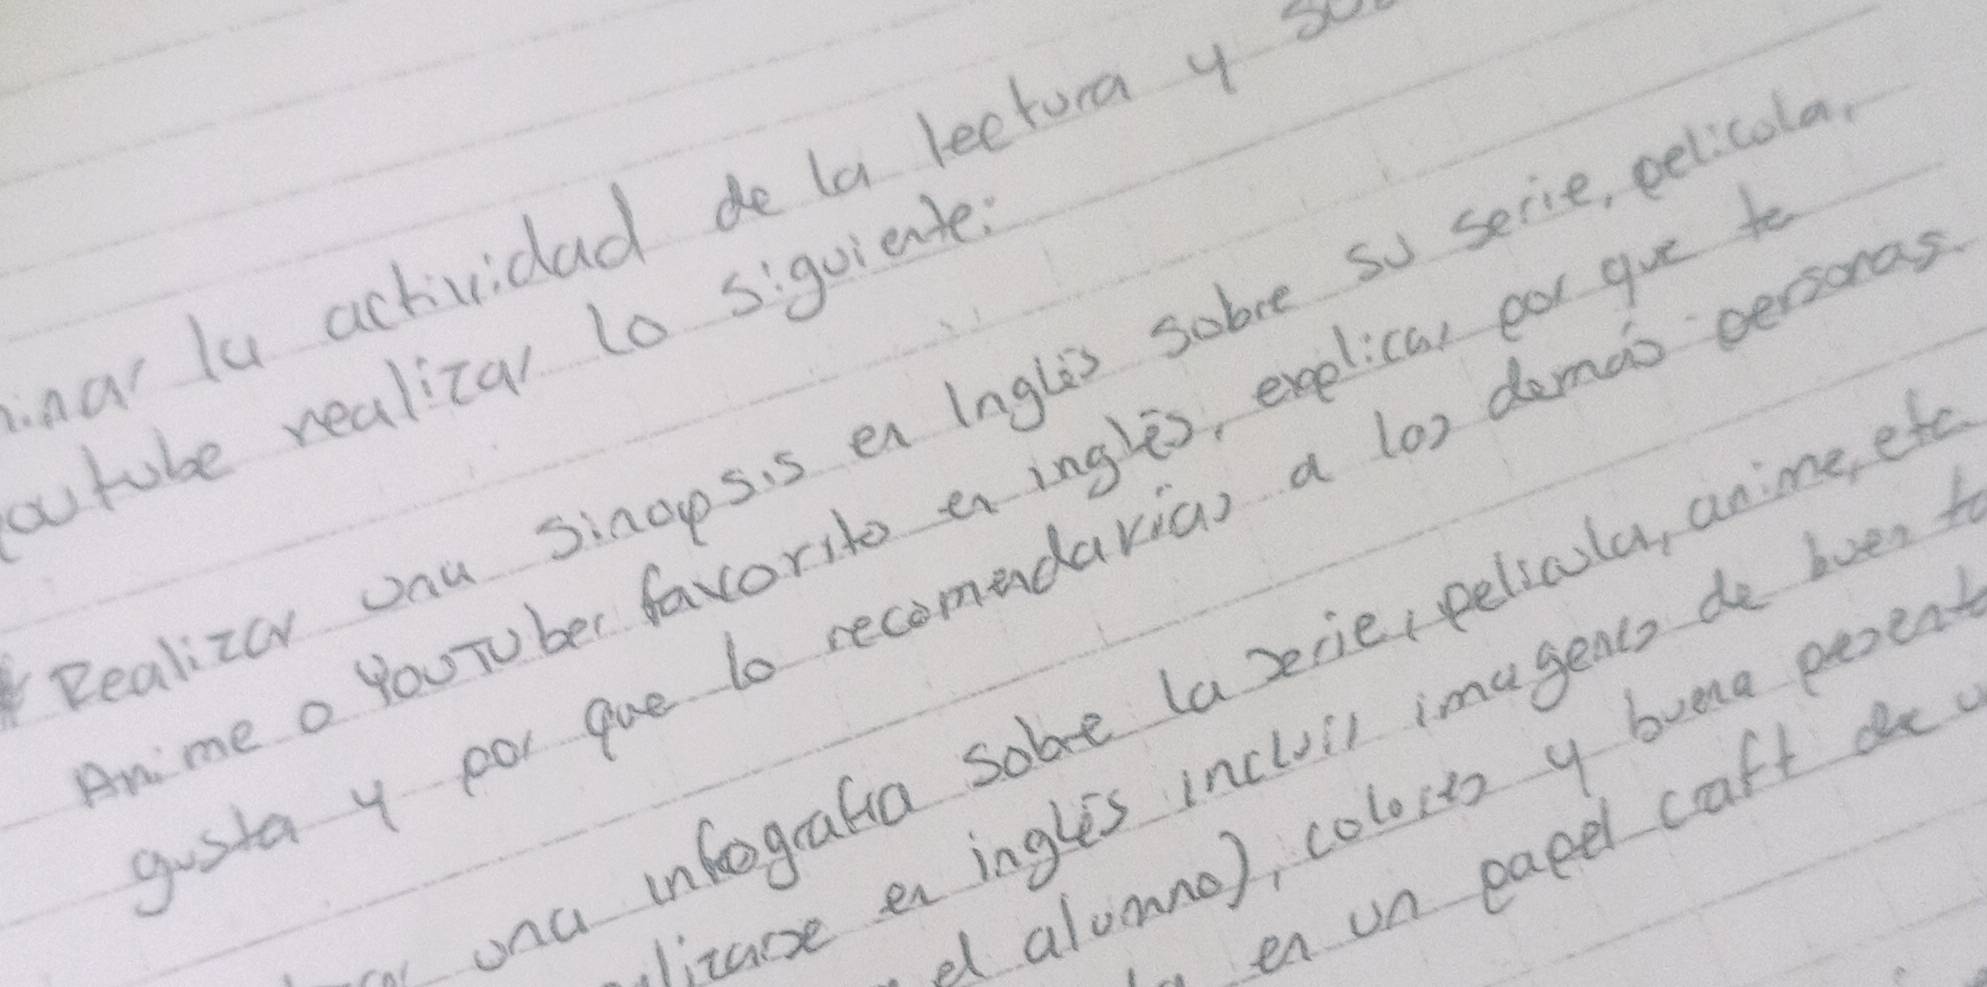 la actividad de la lectura y
realizar lo siguiente:
Realizar una sinopsis en Inglés sobre su serie, pelicola,
Anime o YouTuber favorito en inglés, explicar por que te
gusta y por que lo recomendarias a los demás personas.
una infografia sobre la serie, pelicula, anime, etc
en inglés incluir imagenes de buen
el alumno), colores y buena
en un papel craft de